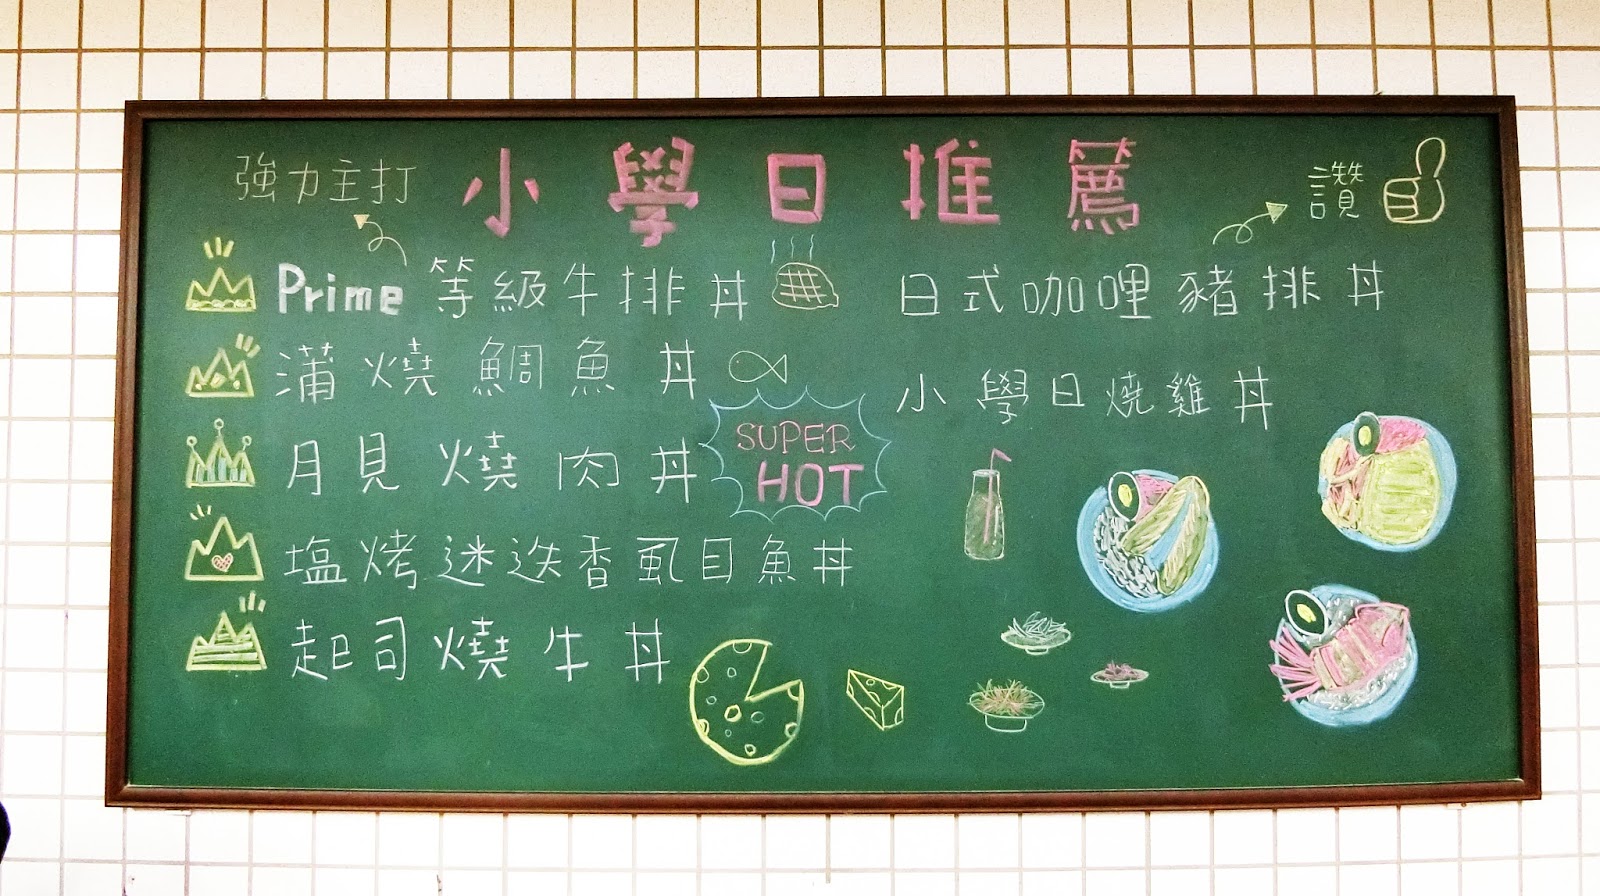 強力主打
小學日推薦
讚
Prime等級牛排丼
日式咖哩豬排丼
蒲燒鯛魚丼
小學日燒雞丼
月見燒肉丼
SUPER
HOT
塩烤迷迭香虱目魚丼
起司燒牛丼